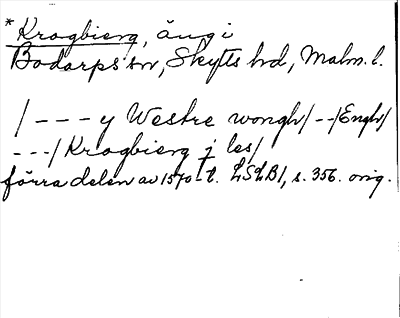 *Krogbierg, äng i
Bodarps sn, Skytts hd, Malm. l.
/ - - - y Westre wongh/ - -/Engh/
- - -/ Krogbierg j les/
förra delen av 1570-t. LSLB1, s. 356. orig.